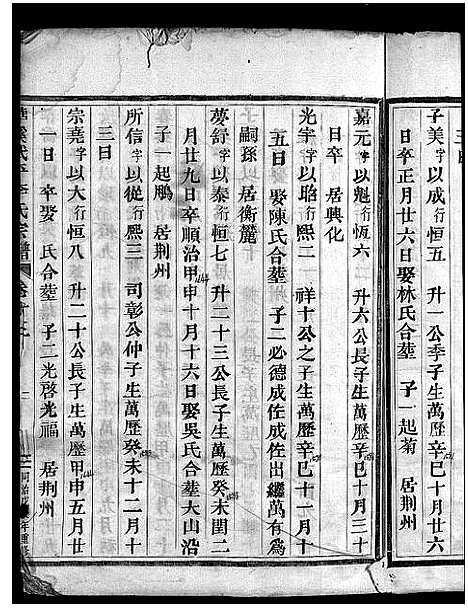 子美字以成行恒五　升一公季子生萬歷辛巳十月廿六
日卒正月廿六日娶林氏合塟　子一起菊　居荆州
嘉元字以魁行恆六二　升六公長子生萬歷辛巳十月三十
日卒　居興化
光宇字以昭行熙二十一　祥十公之子生萬歷辛巳十一月十
五日　娶陳氏合塟　子二必德成佐成佐出繼萬有為
嗣孫以居衡麓
夢舒字以泰行恒七　升二十三公長子生萬歷癸未閏二
月廿九日卒順治甲申十月十六日娶吳氏合塟大山沿
1644
子一起鵬　居荆州
所信字以從行熙三　司彰公仲子生萬歷癸未十二月十
三日
宗堯字以大行恒八　升二十公長子生萬歷甲申五月廿
一日卒娶　氏合塟　子二光啓光福　居荆州
氏宗譜